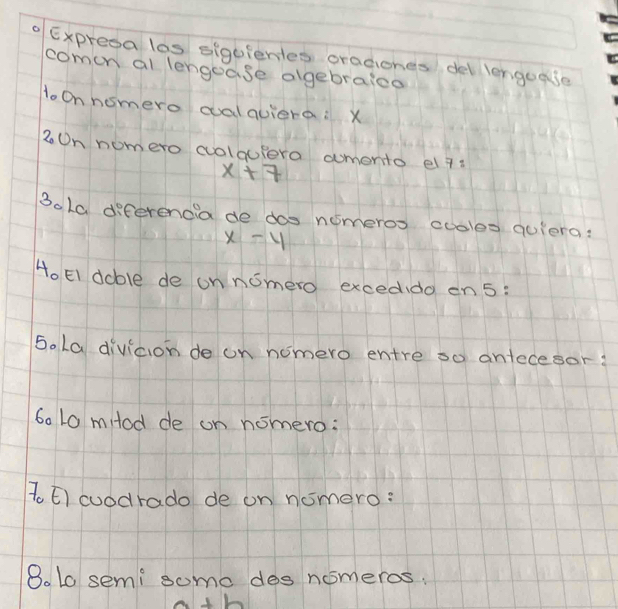 ° Expresa las siguientes oraciones del lenguaje
comun al lenguaje algebraico
1. On nomero cualquiera: x
2. On nomero cualquiera aumento el 7:
x + 7
3. La diferencia de dos nomeros cuales quiera:
x - y
4. El doble de un nómero excedido en 5:
5. La divición de un nómero entre so antecesor:
6. La mitad de un nómero:
7. El cuadrado de un nómero:
8. La semi suma des nómeros.
a + b